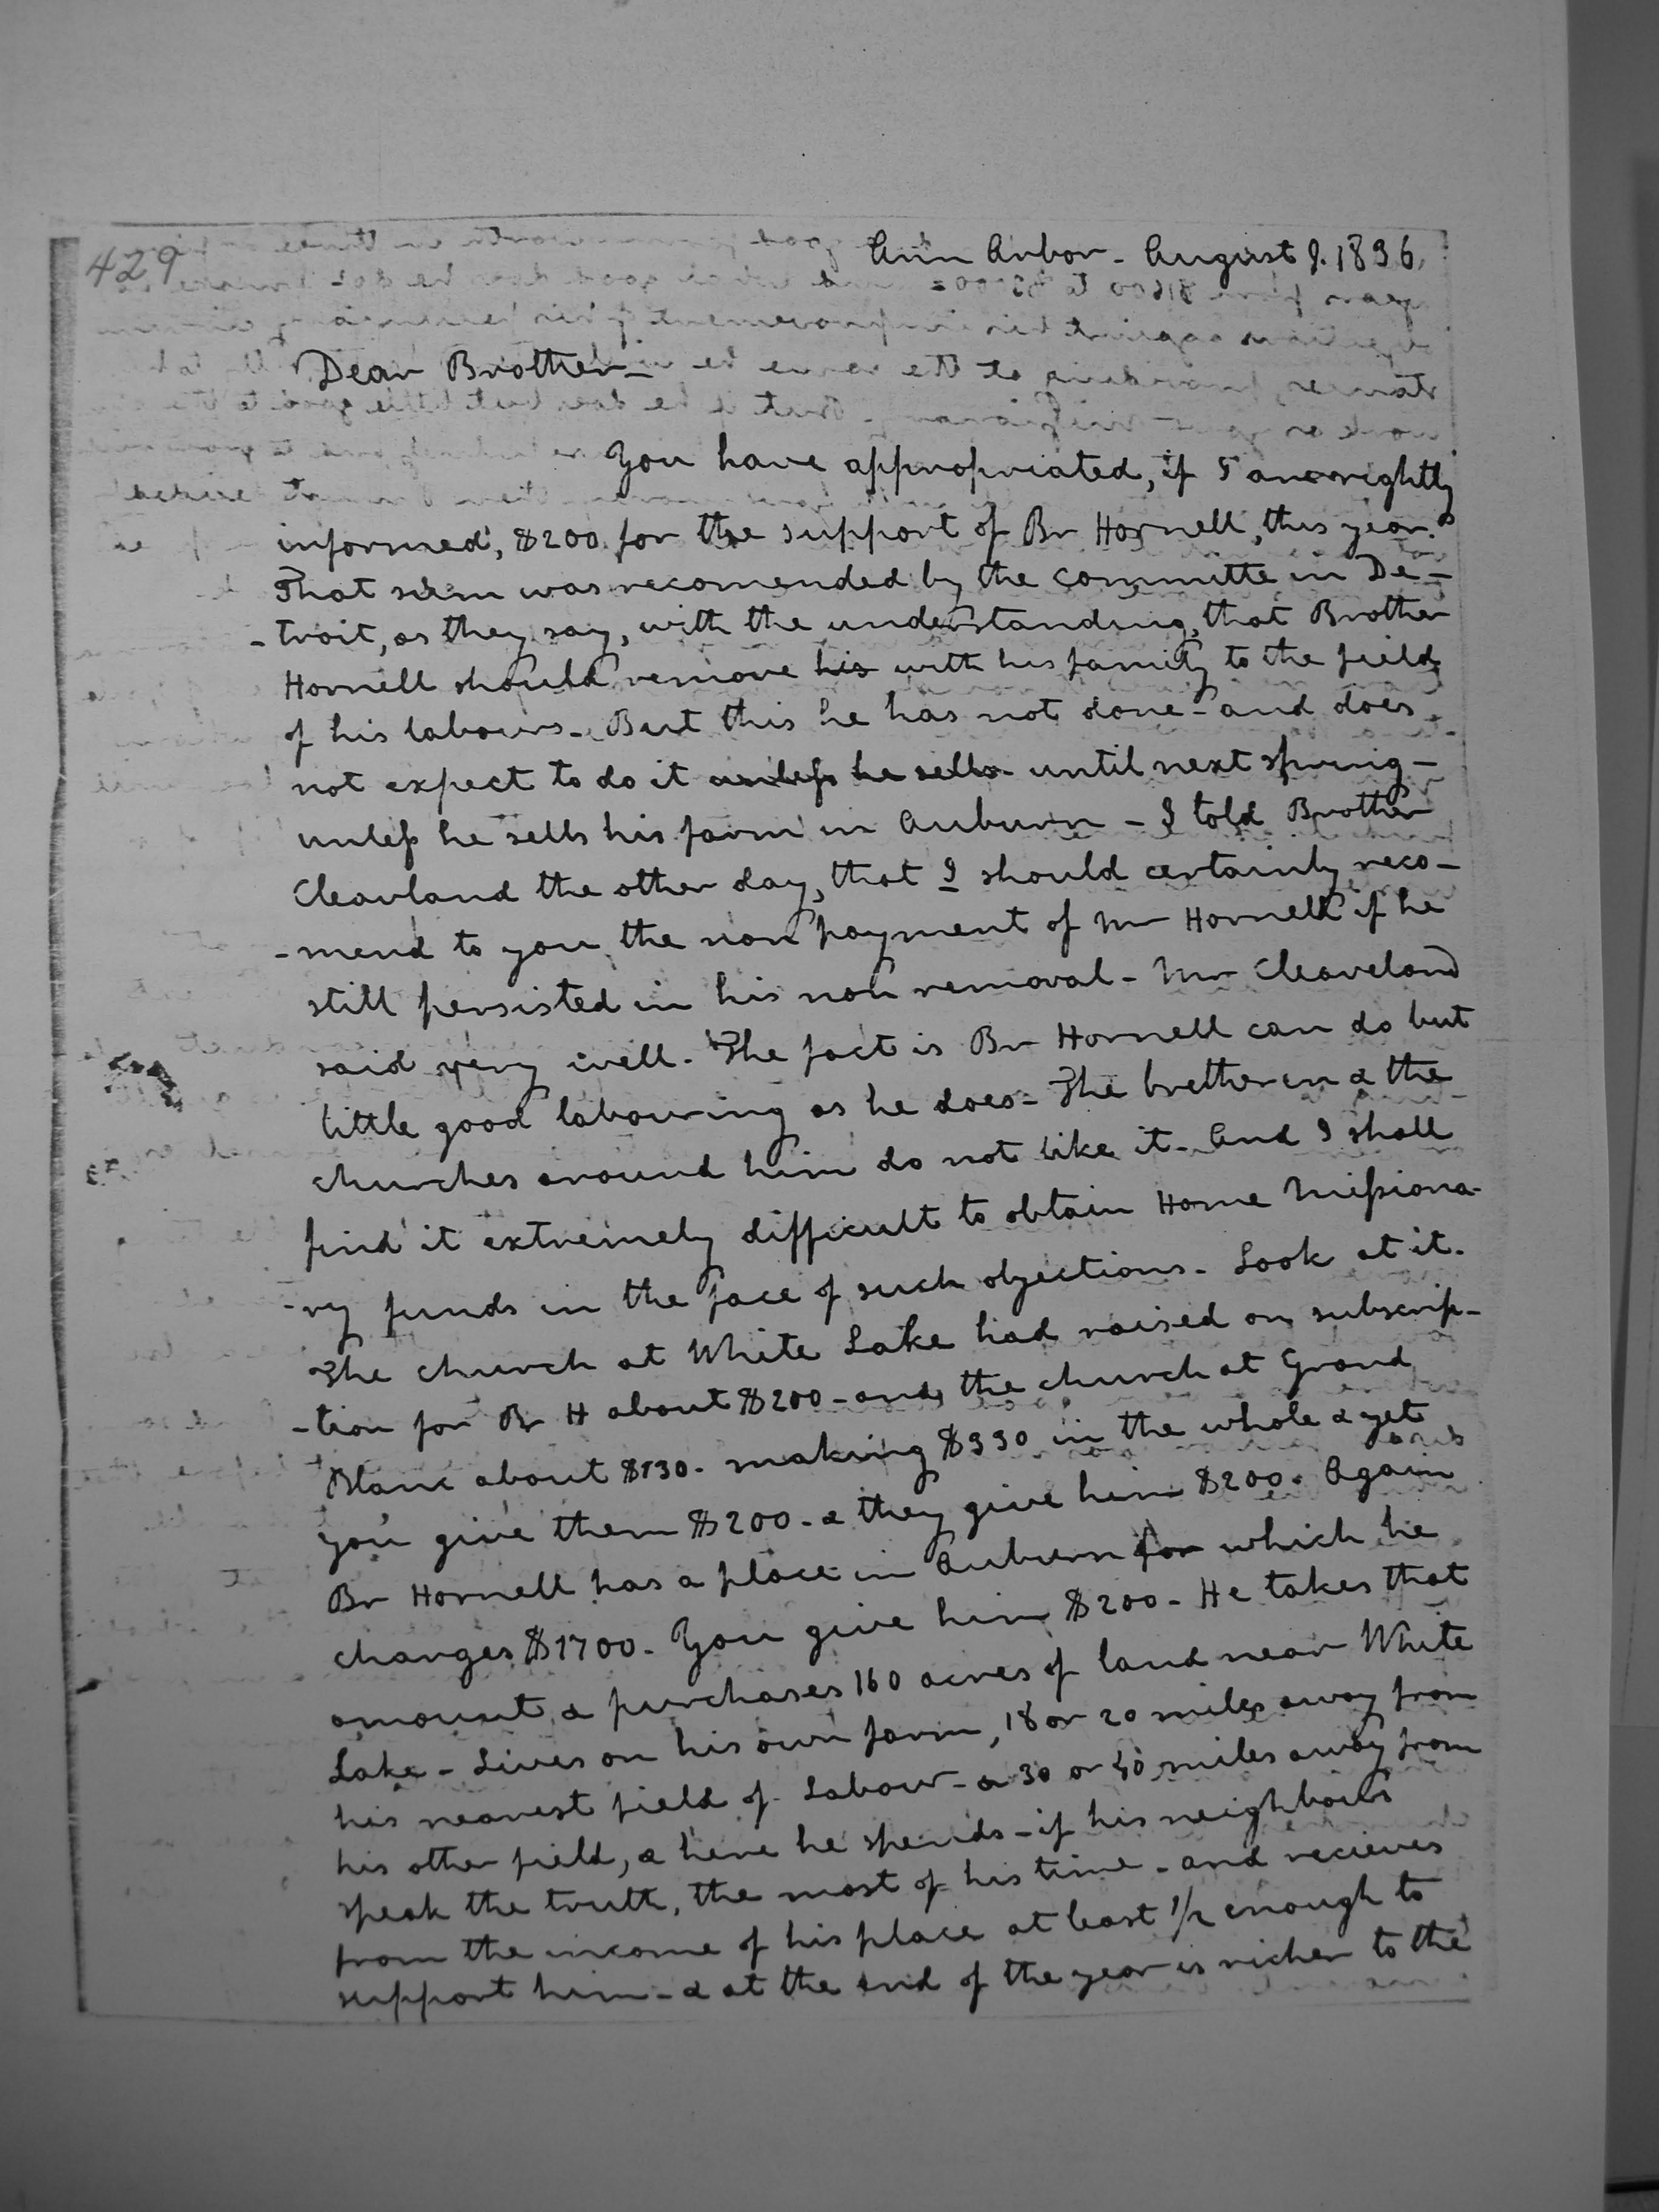 429
Ann Arbor - August 9. 1836,
Dear Brother -
You have appropriated, if I am rightly
informed, $200 for the support of Br Hornell, this year.
That sum was recomended by the committe in De-
-troit, as they say, with the understanding, that Brother
Hornell should remove his with his family to the field
of his labours - But this he has not done - and does
not expect to do it unless he sells - until next spring -
unless he sells his farm in Auburn - I told Brother
Cleavland the other day, that I should certainly reco-
-mend to you the non payment of Mr Hornell if he
still persisted in his non removal - Mr Cleaveland
said very well. The fact is Br Hornell can do but
little good labouring as he does - The bretheren & the
churches around him do not like it - And I shall
find it extremely difficult to obtain Home Missiona-
-ry funds in the face of such objections - Look at it.
The church at White Lake had raised on subscrip-
-tion for Br H about $200 - and the church at Grand
Blanc about $130 - making $330 in the whole & yet
you give them $200 - & they give him $200. Again
Br Hornell has a place in Auburn for which he
charges $1700 - You give him $200 - He takes that
amount & purchases 160 acres of land near White
Lake - Lives on his own farm, 18 or 20 miles away from
his nearest field of Labour - & 30 or 40 miles away from
his other field, & here he spends - if his neighbours
speak the truth, the most of his time - and recieves
from the income of his place at least 1/2 enough to
support him - & at the end of the year is richer to the